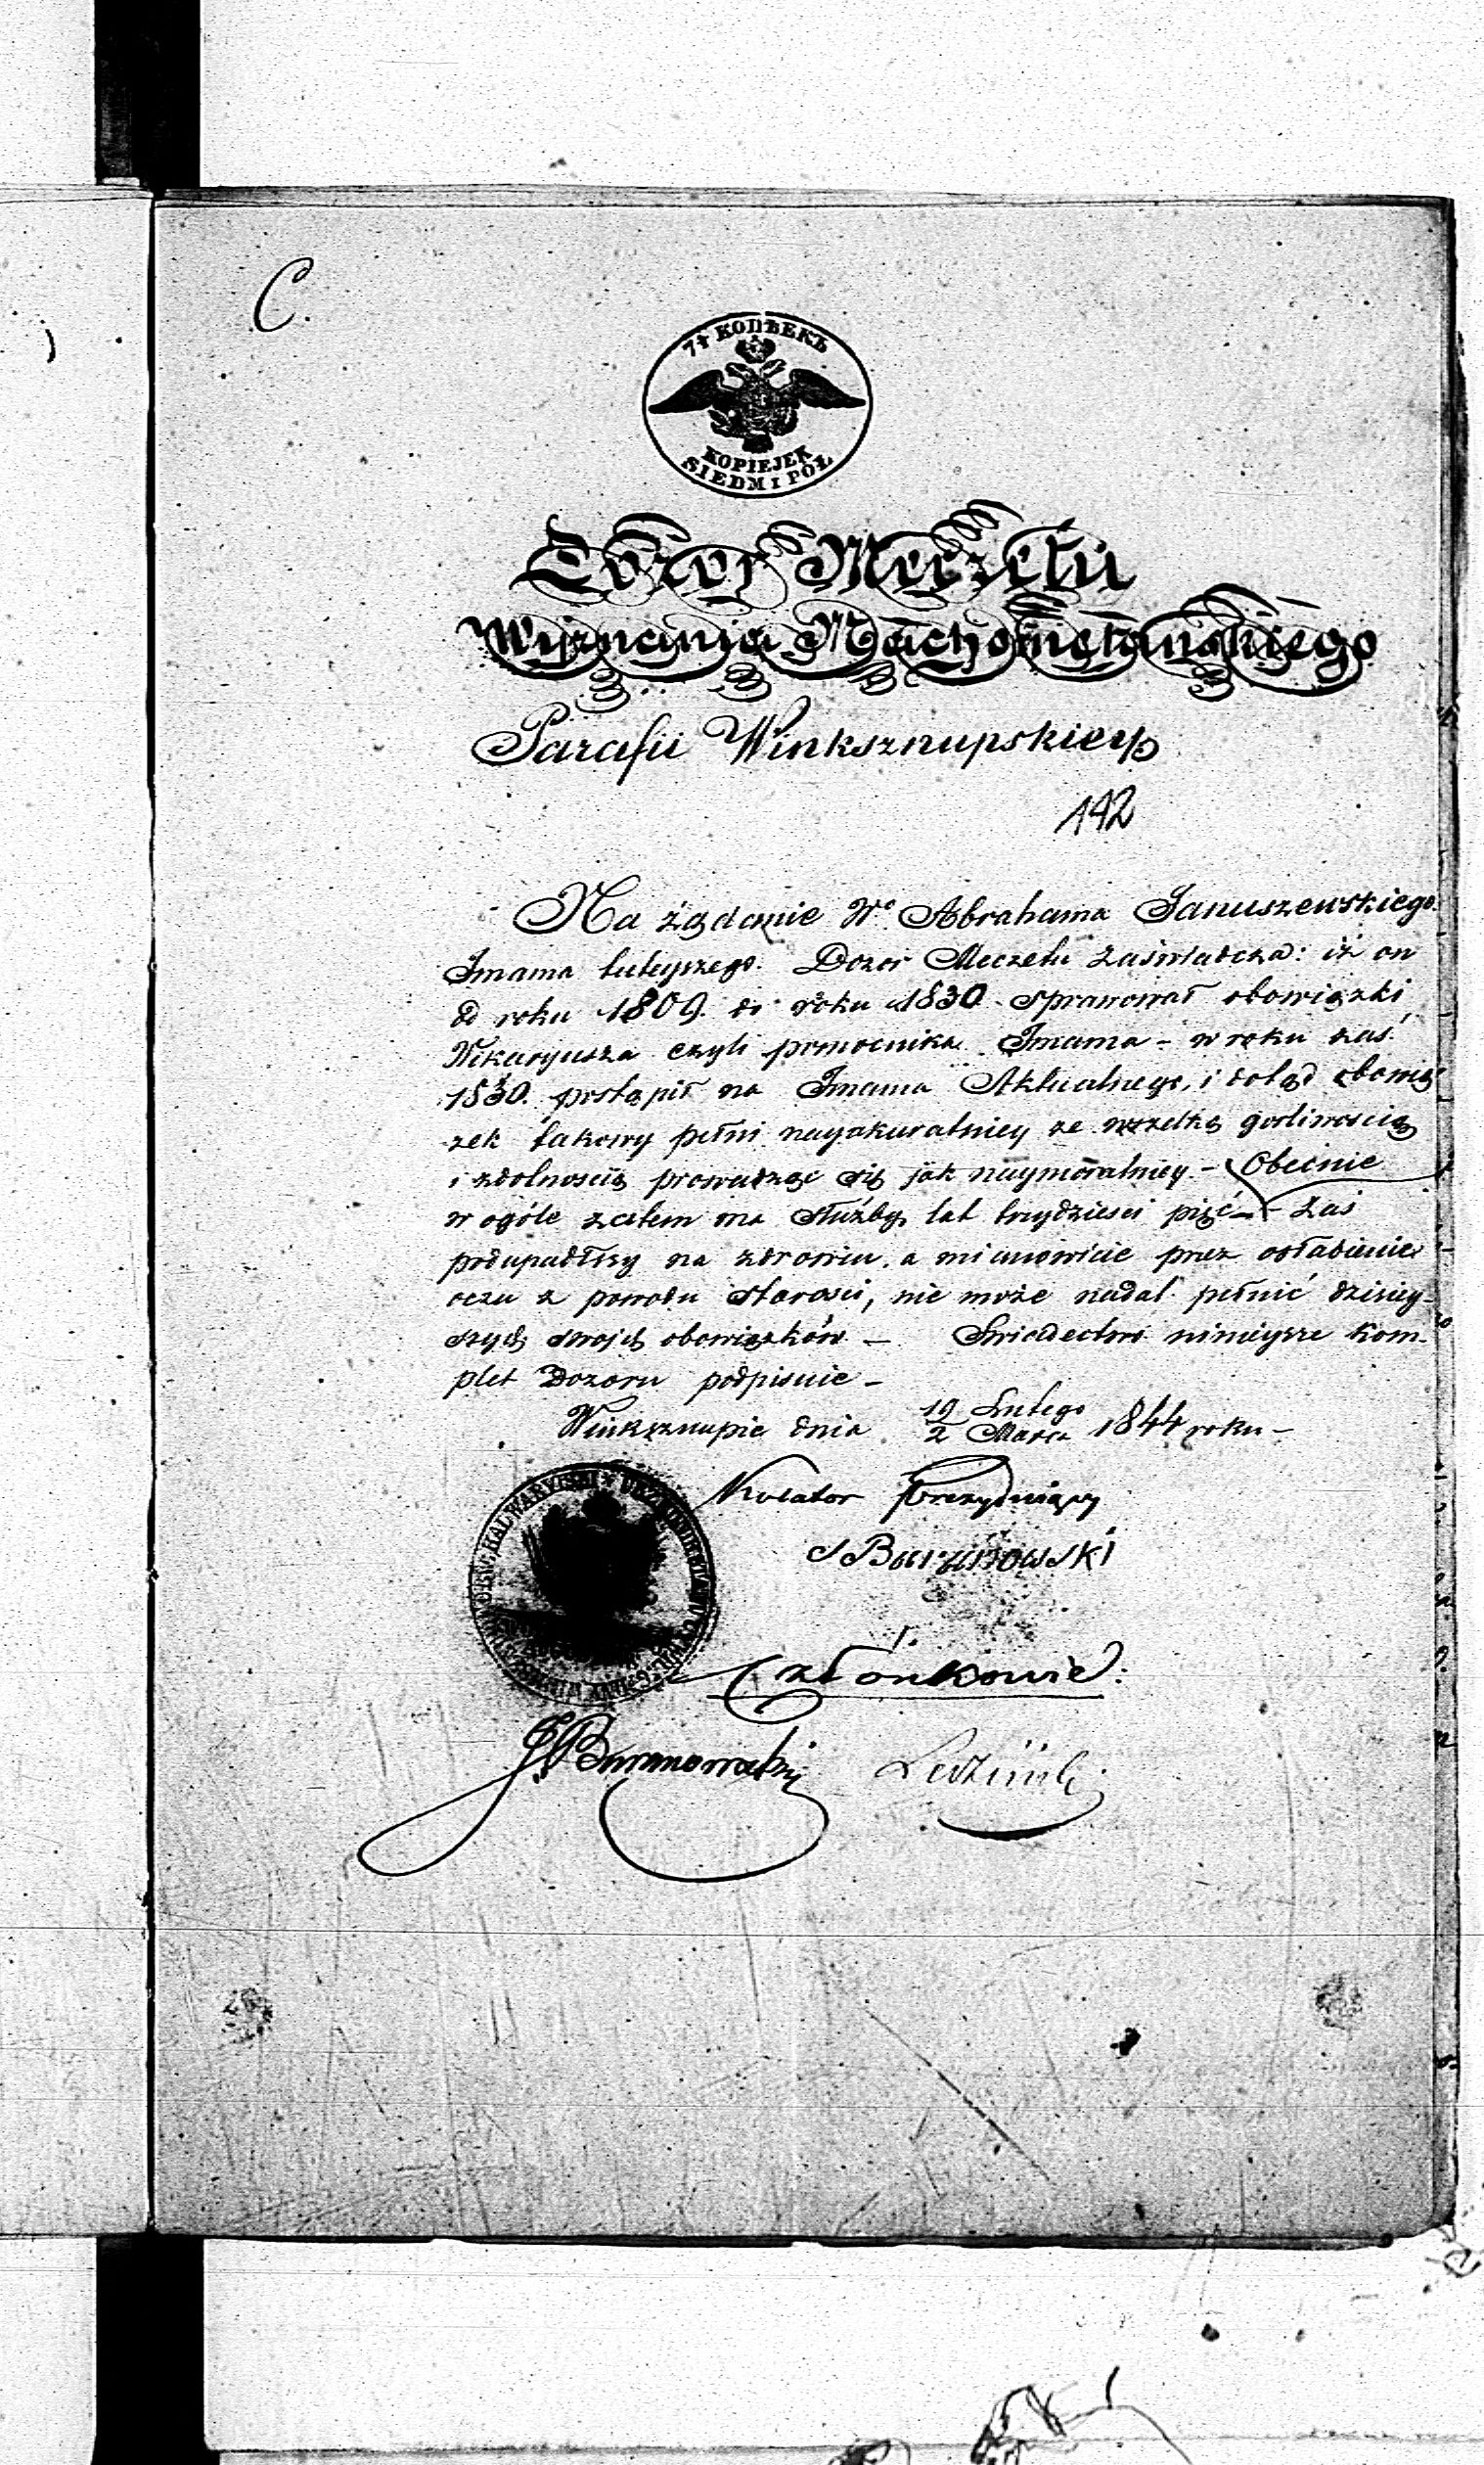 C.
7½ КОПѢЕКЪ
KOPIEJEK
SIEDM I PÓŁ
Dozor Meczetu
Wyznania Machometanskiego
Parafii Winksznupskiey
142
Na żądanie Wº Abrahama Januszewskiego
Imama tuteyszego. Dozor Meczetu zaświadcza: iż on
od roku 1809. do roku 1830. sprawował obowiązki
Wikaryusza czyli pomocnika Imama - w roku zaś
1830. postąpił na Imama Aktualnego, i dotąd obowią
zek takowy pełni nayakuratniey ze wszelką gorliwością
i zdolnością prowadząc się jak naymoralniey. - Obecnie
w ogóle zatem ma służby lat trzydzieści pięć - zaś
podupadłszy na zdrowiu, a mianowicie przez osłabienie
oczu z powodu starości, nie może nadal pełnić dzisiey-
szych swojch obowiązków - Swiadectwo ninieysze kom-
plet Dozoru podpisuie -
Winksznupie dnia 19 Lutego / 2 Marca 1844 roku -
KALWARYISKI
Kolator Prezyduiący
Członkowie:
J. Baranowski